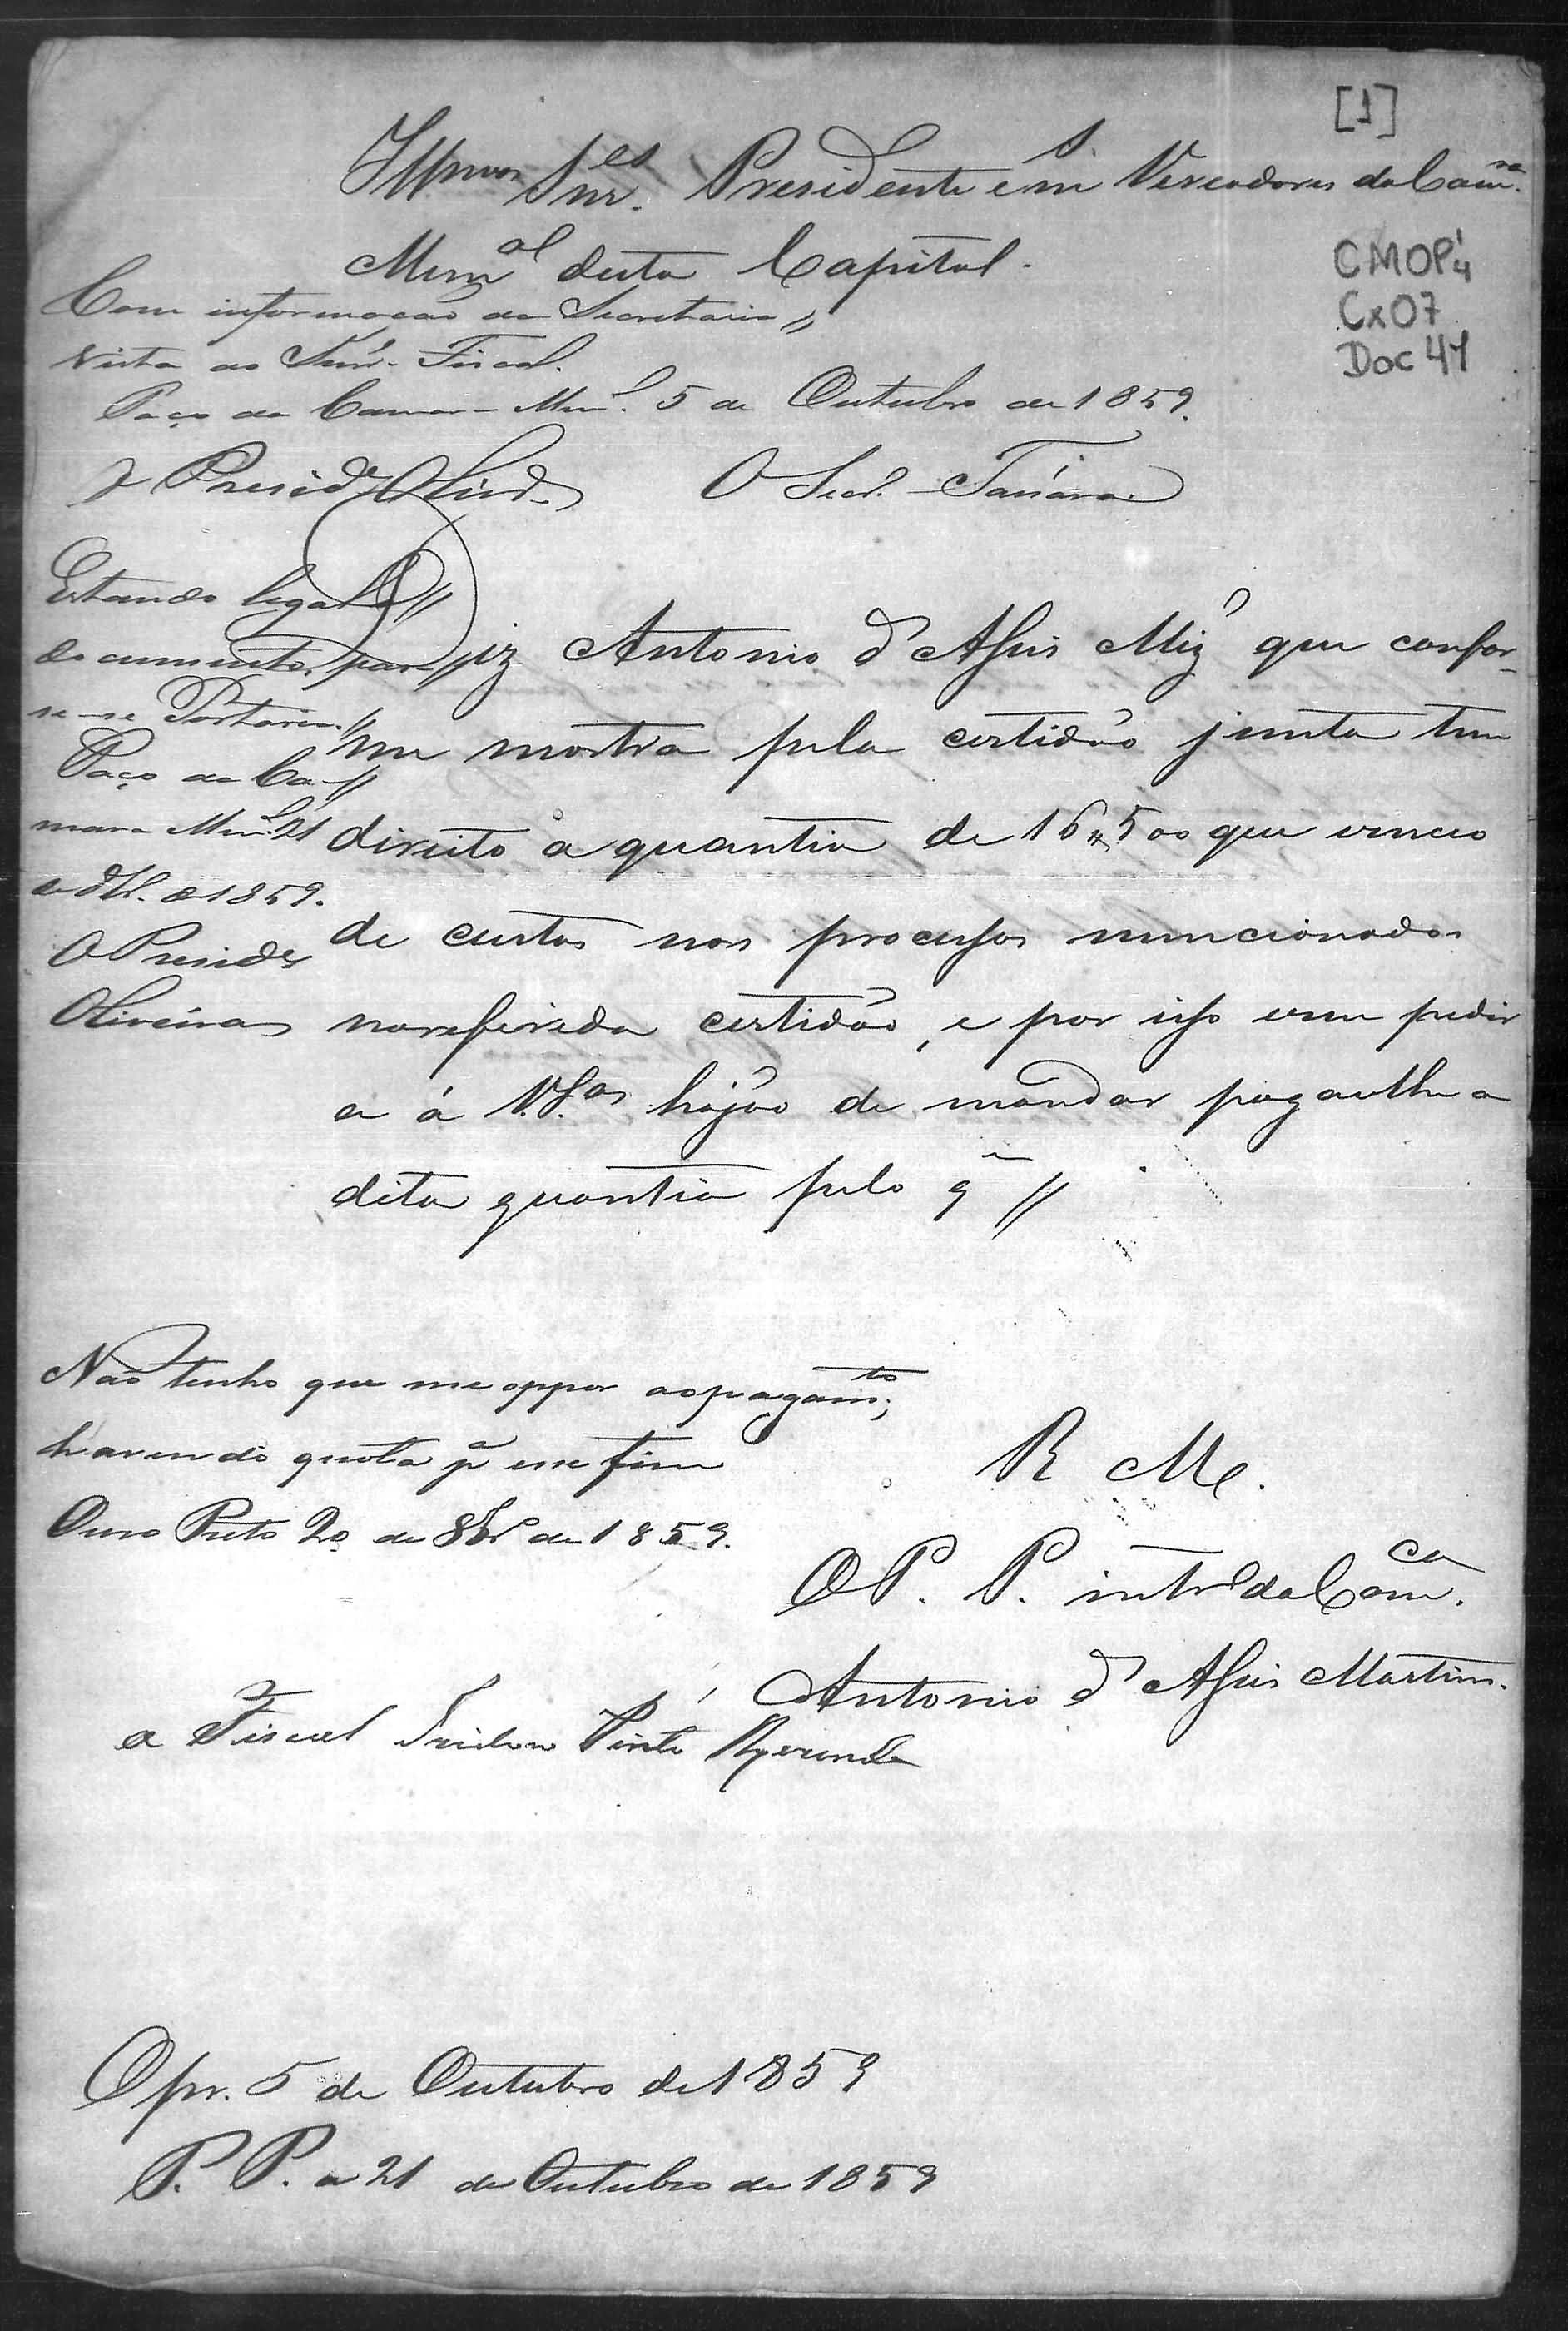 [1]
Illmos Snr.es Presidente e m Vereadores da Camra.
Munal desta Capital.
CMOP 1/4
Cx 07
Doc 41
Com informação da Secretaria //
vista ao Snr. Fiscal.
Paço da Camara Munl. 5 de Outubro de 1859.
O Preside Olivra O Secr.
Estando legal o //
documento, pas //
se-se Portaria. //
Paço da Ca //
mara Munl. 21
de 8br. de 1859.
O Preside
Oliveira
Diz Antonio d'Assis Miz que confor-
me mostra pela certidão junta tem
direito a quantia de 16$500 que venceo
de custas nos processos mencionados
na referida certidão, e por isso vem pedir
a á V.Sas hajão de mandar pagar-lhe a
dita quantia pelo q //
Não tenho que me oppor ao pagamto;
havendo quota pa esse fim
Ouro Preto 20 de 8br de 1859.
R Me.
O P. P. intro da Camca.
Antonio d'Assis Martins.
O Fiscal Pinto
Opr. 5 de Outubro de 1859
P. P. a 21 de Outubro de 1859